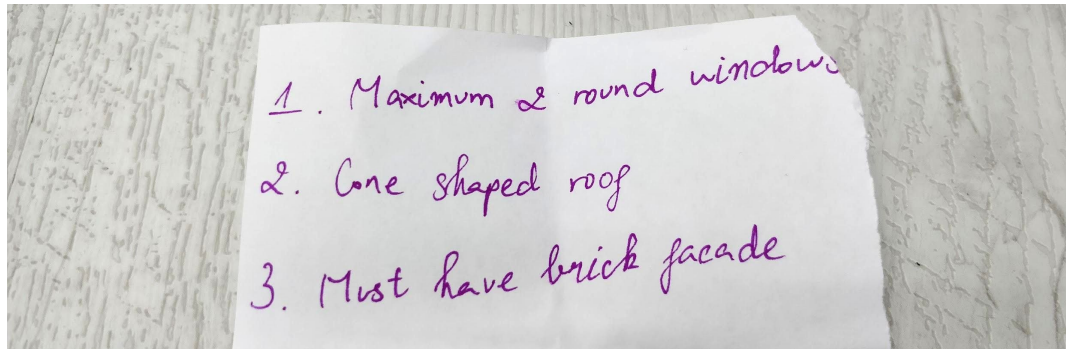 1. Maximum 2 round windows
2. Cone shaped roof
3. Must have brick facade